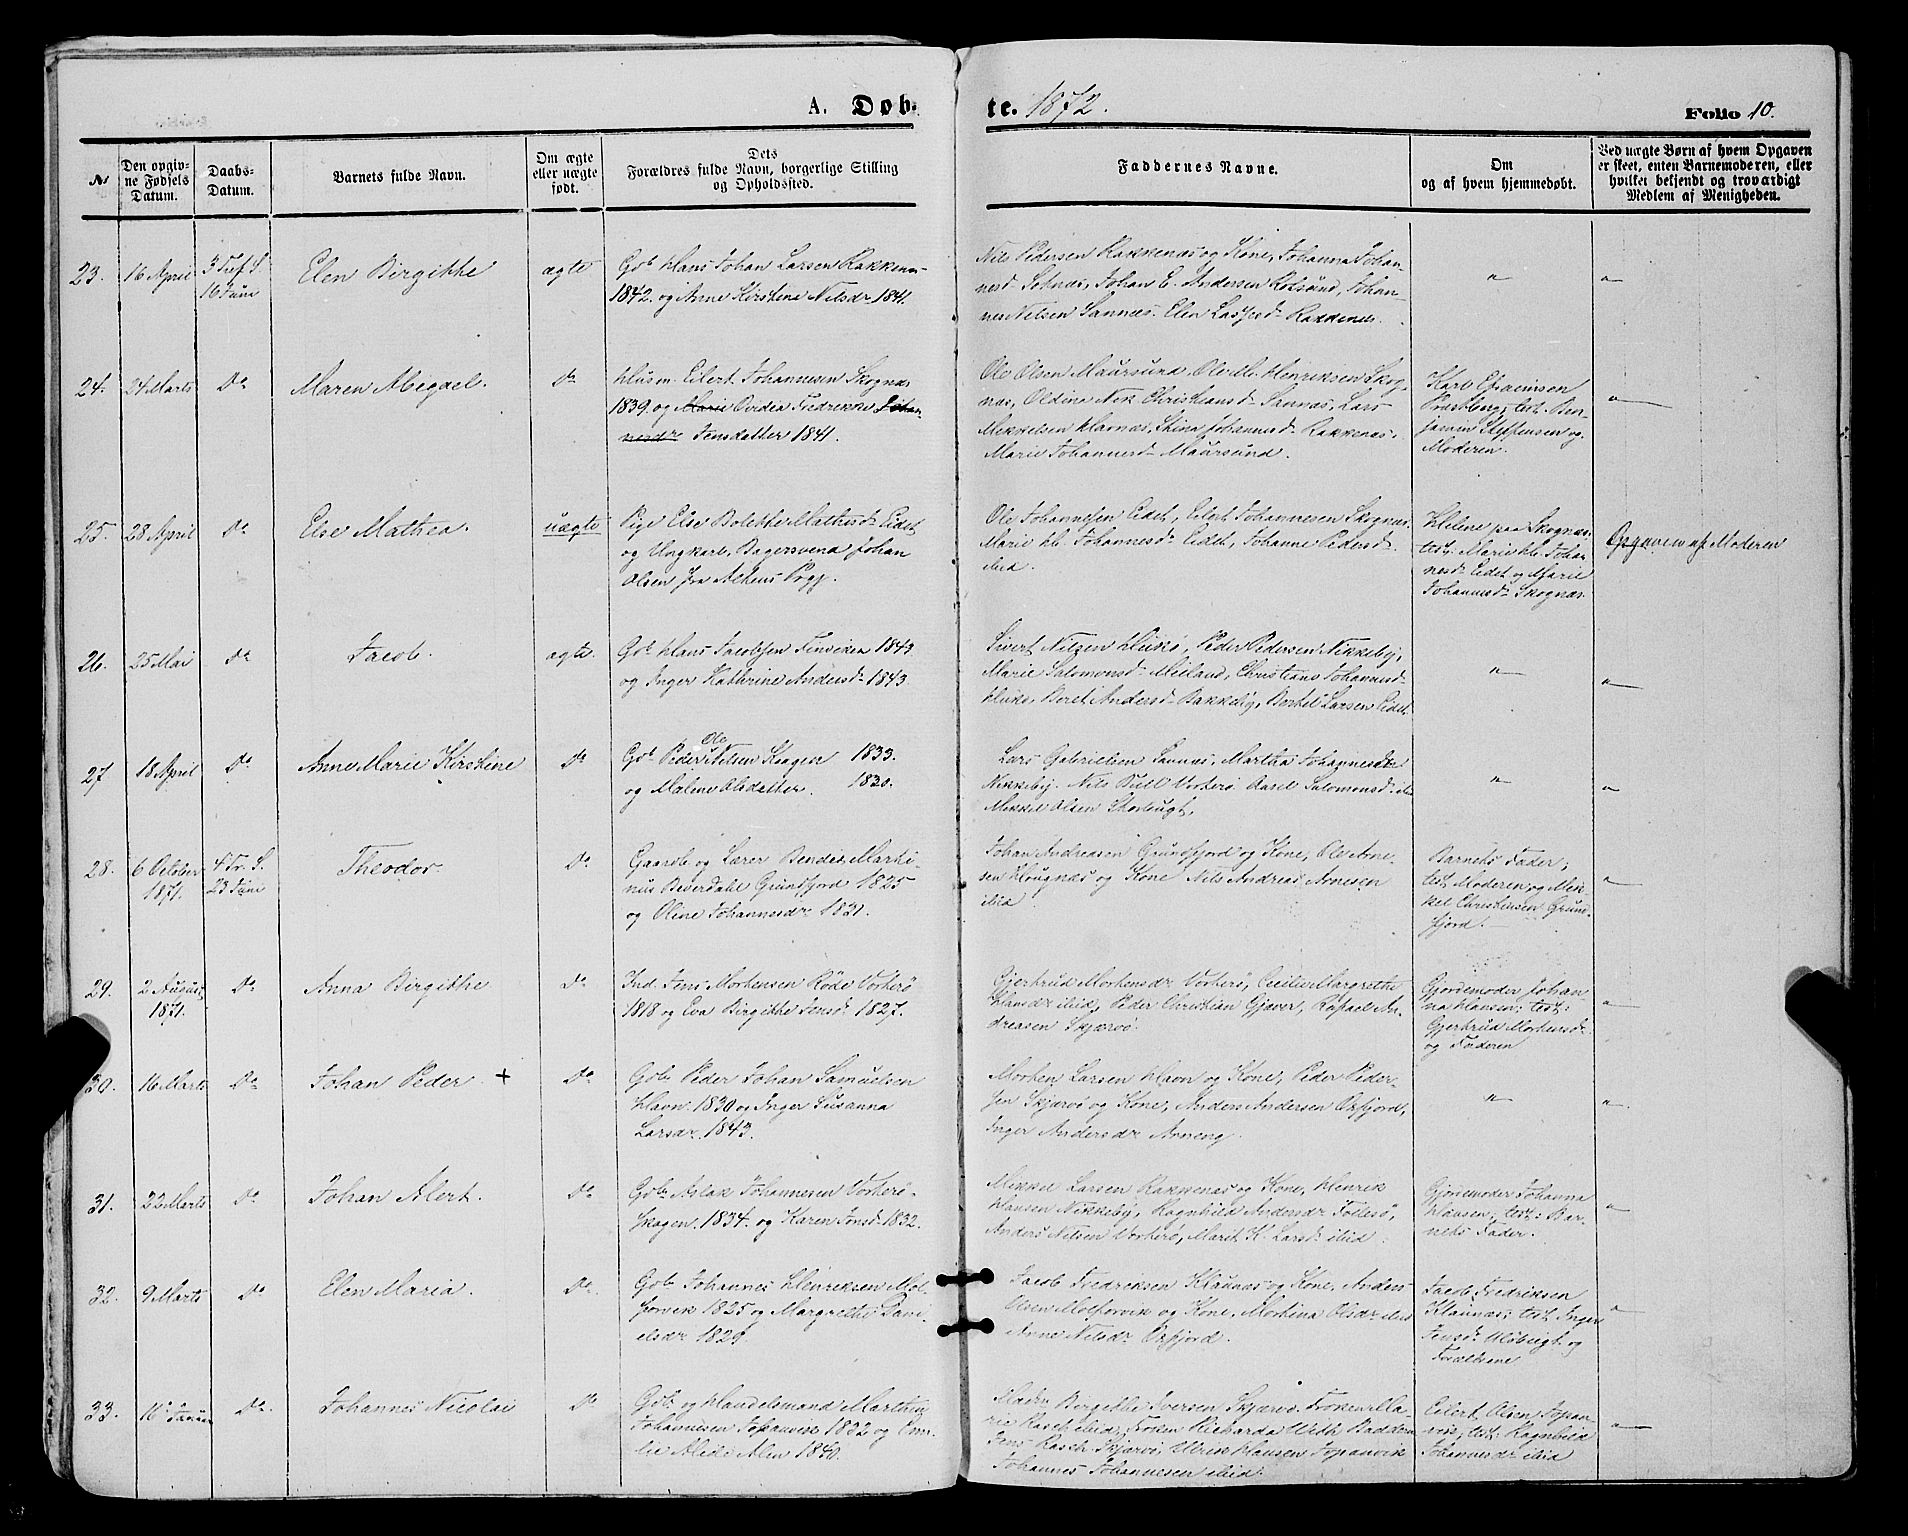 A. Døb-
te. 1872.
Folio 10.
No
Den opgiv-
ne Fødsels
Datum.
Daabs-
Datum.
Barnets fulde Navn.
Om ægte
eller uægte
født.
Dets
Forældres fulde Navn, borgerlige Stilling
og Opholdssted.
Faddernes Navne.
Om
og af hvem hjemmedøbt.
Ved uægte Børn af hvem Opgaven
er skeet, enten Barnemoderen, eller
hvilket bekjendt og troværdigt
Medlem af Menigheden.
23.
16 April
3 Tref. S.
16 Juni
Elen Birgithe
ægte
Gbr Hans Johan Larsen Rakkenæs
1842. og Anne Kirstina Nilsdr 1841.
Nils Pedersen Rakkenæs og Kone, Johanna Johan-
nesd Andersen Rotsund, Johan-
nes Nilsen Sannæs. Elen
24.
24 Marts
Do
Maren Abigael.
Do
Husm. Eilert Johannesen Skognæs
1839. og Marie Ovidea Fredrikke Johan-
nesdr Jensdatter 1841.
Ole Olsen Maursund, Ole M. Henriksen Skog-
næs, Oldine Christiansd Sannæs, Lars
Mikkelsen Havnæs, Stina Johannesd Rakkenæs.
Marie Johannesd Maursund.
Karl Efraimsen
test. Ben-
jamin Steffensen og
Moderen.
25.
28 April
Do
Else Mathea.
uægte
Pige Else Bolethe Mathisd Eidet
og Ungkarl, Bagersvend Johan
Olsen fra
Ole Johannesen Eidet, Eilert Johannesen Skognæs.
Marie Johannesdr Eidet, Johanne Pedersd
ibid.
Helene paa Skognæs,
test. Marie Johan-
nesd Eidet og Marie
Johannesd Skognæs.
Opgaven af Moderen
26.
25 Mai
Do
Jacob.
ægte.
Gbr Hans Jacobsen 1843
og Inger Kathrine Andersd 1843.
Sivert Nilsen Hukø, Peder Pedersen Nikkeby,
Marie Salomonsd Meiland, Christians Johannesd
Berit Andersd Bakkeby, Berthel Larsen Eidet.
27
18 April
Do
Anne Marie Kirstine
Do
Gbr Peder Ole Nilsen Skagen 1833.
og Malene Olsdatter. 1830.
Lars Gabrielsen Sannæs, Martha Johannesdtr
Nikkeby. Nils Vorterø Aasel Salomonsd ibid
Mikkel Olsen
28.
6 October
1871.
4 Tr. S.
23 Juni
Theodor
Do
Gaardb og Lærer Bendix Marti-
nus Beverdahl Grundfjord 1825
og Oline Johannesdr 1831.
Johan Andreasen Grundfjord og Kone, Ole Arne-
sen Hougnæs og Kone Nils Andreas Arnesen
ibid
Barnets Fader;
test. Moderen og Mik-
kel Christensen Grund-
fjord.
29.
2 August
1871.
Do
Anna Birgithe
Do
Ind. Jens Mortensen Röde Vorterö
1818 og Eva Birgithe Jensd 1827.
Gjertrud Mortensdr Vorterö, Cecilie Margrethe
Hansdr ibid, Peder Christian Gjæver, Rafael An-
dreasen Skjærvö.
Gjordemoder Johan-
na Hansen; test:
Gjertrud Mortensdr
og Faderen
30.
16 Marts
Do
Johan Peder +
Do
Gbr Peder Johan Samuelsen
Havn. 1830 og Inger Susanna
Larsdr. 1843.
Morten Larsen Havn og Kone, Peder Peder-
sen Skjærvö og Kone, Anders Andersen Oxfjord,
Inger Andersdr
31.
22 Marts
Do
Johan Alert.
Do
Gbr Aslak Johannesen Vorterö-
skagen. 1834. og Karen Jonsd 1832.
Mikkel Larsen Rakkenæs og Kone, Henrik
Hansen Nikkeby, Ragnhild Andersdr
Anders Nilsen Vorterö, Marit K. Larsd ibid.
Gjordemoder Johanna
Hansen; test: Bar-
nets Fader.
32.
9 Marts
Do
Elen Maria.
Do.
Gbr Johannes Henriksen Mol-
forvik 1825 og Margrethe Dani-
elsdr 1829.
Jacob Fredriksen Klaunæs og Kone, Anders
Olsen Molforvik og Kone, Mortina Olsdr ibid
Anne Nilsdr Oxfjord.
Jacob Fredriksen
Klaunæs; test. Inger
Jensd og
Forældrene
33.
16 Januar
Do.
Johannes Nicolai
Do
Gbr og Handelsmand Marthin
Johannesen 1832 og Emi-
lie 1840.
Madm Birgithe Iversen Skjærvö. Fröken Ma-
rie Rasch ibid, Fröken Richarda
Jens Rasch Skjærvö, Ulrik Hansen
Johannes Johannesen ibid.
Eilert Olsen
test: Ragnhild
Johannesdr ibid